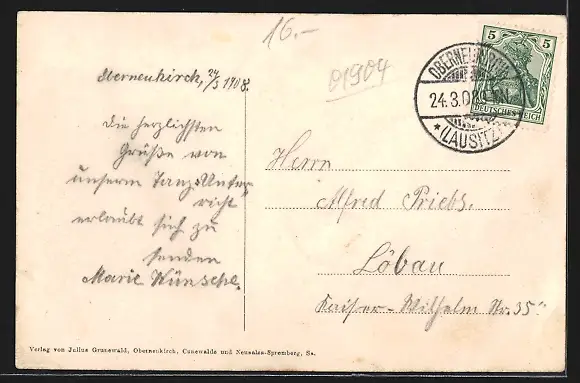 16.-
01904
Oberneukirch, 24/3 1908.
Die herzlichsten
Grüße von
unserm Tanz-Unter-
richt
erlaubt sich zu
senden
Marie Wünsche.
5 5
DEUTSCHES REICH
OBERNEUKIRCH
24.3.08
* (LAUSITZ)
Herrn
Alfred Priebs.
Löbau
Kaiser-Wilhelm Str. 35"
Verlag von Julius Grunewald, Oberneukirch, Cunewalde und Neusalza-Spremberg, Sa.